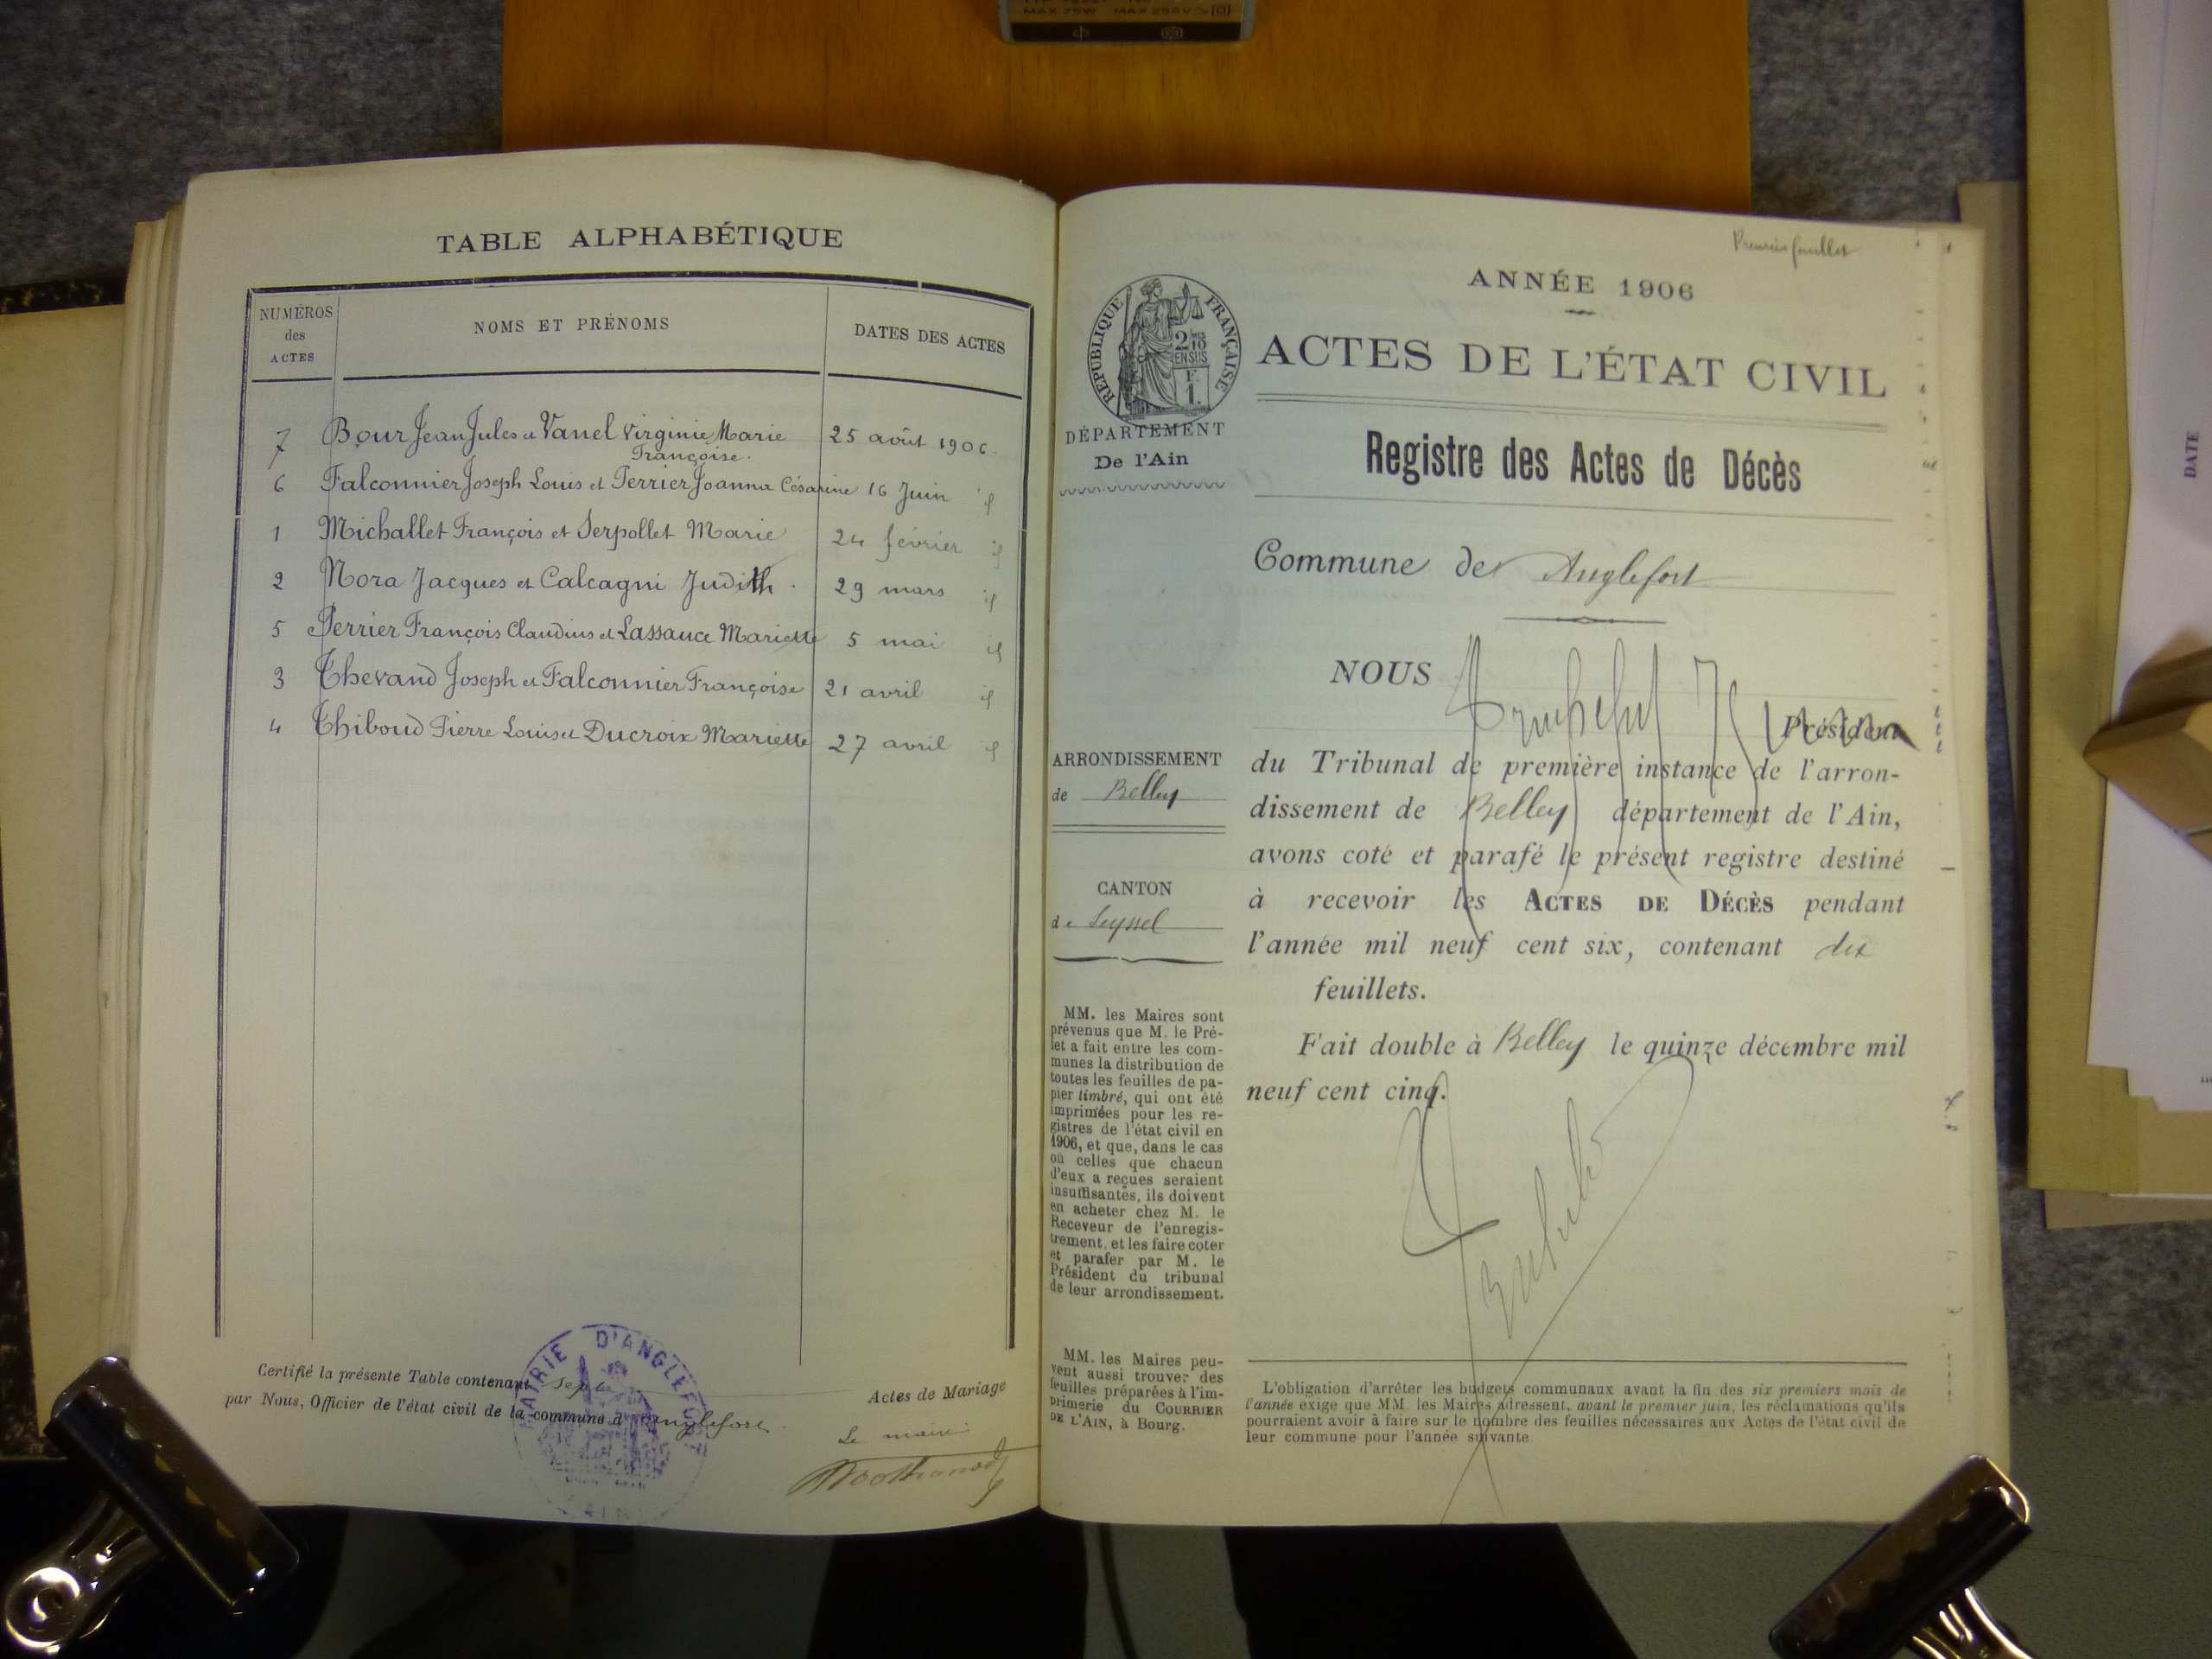 MAX 75W MAX 250V
TABLE ALPHABÉTIQUE
NUMÉROS
des
ACTES
NOMS ET PRÉNOMS
DATES DES ACTES
7 Bour Jean Jules et Vanel Virginie Marie 25 août 1906
Françoise.
6 Falconnier Joseph Louis et Perrier Joanna Césarine 16 Juin id
1 Michallet François et Serpollet Marie 24 février id
2 Mora Jacques et Calcagni Judith . 29 mars id
5 Perrier François Claudius et Lassauce Mariette 5 mai id
3 Thevand Joseph et Falconnier Françoise 21 avril id
4 Thiboud Pierre Louis et Ducroix Mariette 27 avril id
Certifié la présente Table contenant sept Actes de Mariage
par Nous, Officier de l'état civil de la commune d'Anglefort
Le maire
MAIRIE D'ANGLEFORT
AIN
Premier feuillet
ANNÉE 1906
RÉPUBLIQUE FRANÇAISE
2/10
EN SUS
F.
1.
ACTES DE L'ÉTAT CIVIL
DÉPARTEMENT
De l'Ain
Registre des Actes de Décès
Commune de Anglefort
NOUS
Président
du Tribunal de première instance de l'arron-
dissement de Belley département de l'Ain,
avons coté et parafé le présent registre destiné
à recevoir les ACTES DE DÉCÈS pendant
l'année mil neuf cent six, contenant dix
feuillets.
Fait double à Belley le quinze décembre mil
neuf cent cinq.
ARRONDISSEMENT
de Belley
CANTON
de Seyssel
MM. les Maires sont
prévenus que M. le Pré-
fet a fait entre les com-
munes la distribution de
toutes les feuilles de pa-
pier timbré, qui ont été
imprimées pour les re-
gistres de l'état civil en
1906, et que, dans le cas
où celles que chacun
d'eux a reçues seraient
insuffisantes, ils doivent
en acheter chez M. le
Receveur de l'enregis-
trement, et les faire coter
et parafer par M. le
Président du tribunal
de leur arrondissement.
MM. les Maires peu-
vent aussi trouver des
feuilles préparées à l'im-
primerie du COURRIER
DE L'AIN, à Bourg.
L'obligation d'arrêter les budgets communaux avant la fin des six premiers mois de
l'année exige que MM. les Maires adressent, avant le premier juin, les réclamations qu'ils
pourraient avoir à faire sur le nombre des feuilles nécessaires aux Actes de l'état civil de
leur commune pour l'année suivante.
DATE